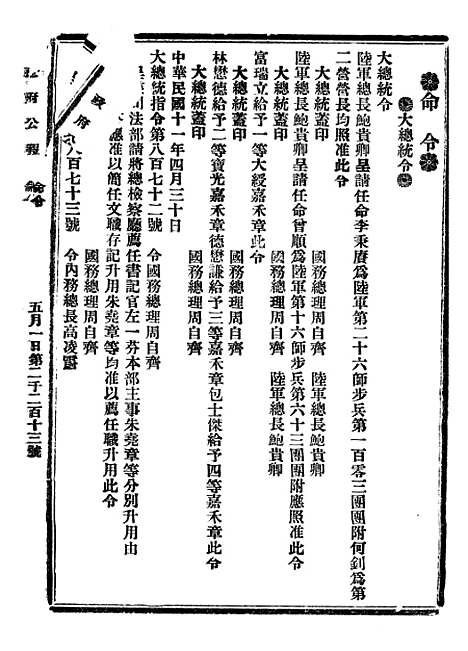 命令
大總統令
大總統令
陸軍總長鮑貴卿呈請任命李秉賡爲陸軍第二十六師步兵第一百零三團團附何釗爲第
二營營長均照准此令
大總統蓋印
國務總理周自齊 陸軍總長鮑貴卿
陸軍總長鮑貴卿呈請任命曾順爲陸軍第十六師步兵第六十三團團附應照准此令
大總統蓋印
國務總理周自齊 陸軍總長鮑貴卿
富瑞立給予一等大綬嘉禾章此令
大總統蓋印
國務總理周自齊
林懋德給予二等寶光嘉禾章德懋謙給予三等嘉禾章包士傑給予四等嘉禾章此令
大總統蓋印
國務總理周自齊
中華民國十一年四月三十日
大總統指令第八百七十二號 令國務總理周自齊
法部請將總檢察廳薦任書記官左一芬本部主事朱堯章等分別升用由
准以簡任文職存記升用朱堯章等均准以薦任職升用此令
國務總理周自齊
八百七十三號 令內務總長高凌霨
政府
政府公報 命令
五月一日第二千二百十三號